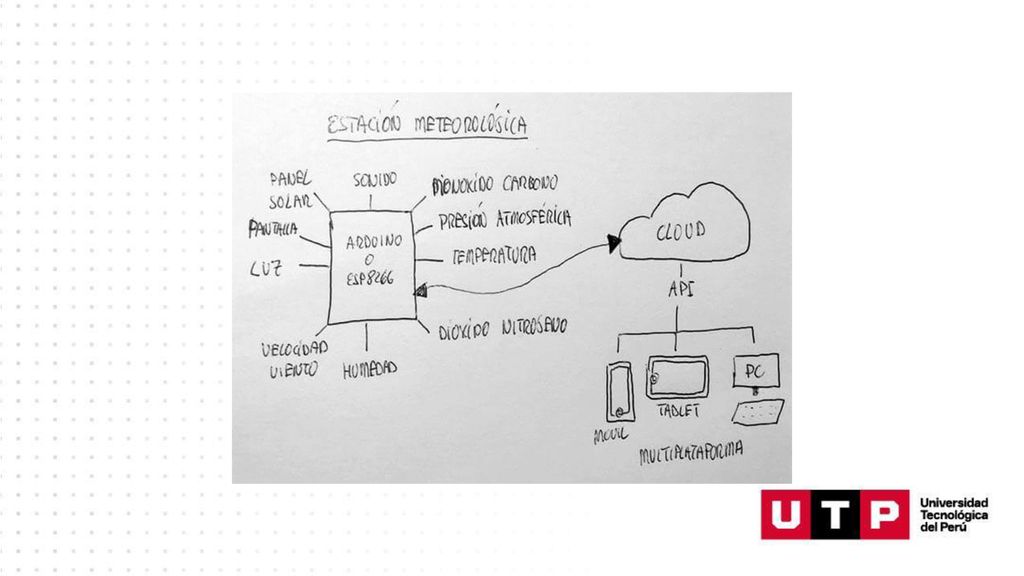 ESTACIÓN METEOROLÓGICA
PANEL
SOLAR
SONIDO
MONOXIDO CARBONO
PANTALLA
PRESIÓN ATMOSFÉRICA
ARDUINO
O
ESP8266
LUZ
TEMPERATURA
DIOXIDO NITROGENO
VELOCIDAD
VIENTO
HUMEDAD
CLOUD
API
MOVIL
TABLET
PC
MULTIPLATAFORMA
UTP
Universidad
Tecnológica
del Perú